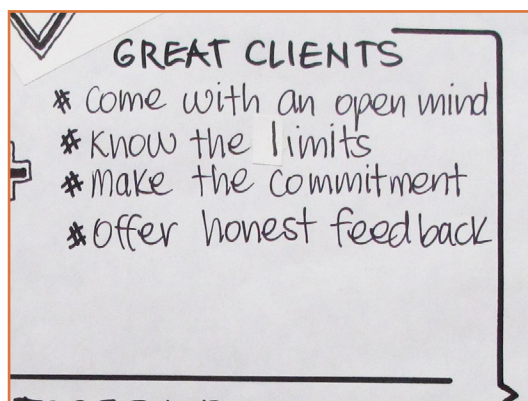 GREAT CLIENTS
# Come with an open mind
# Know the limits
# make the commitment
# Offer honest feedback